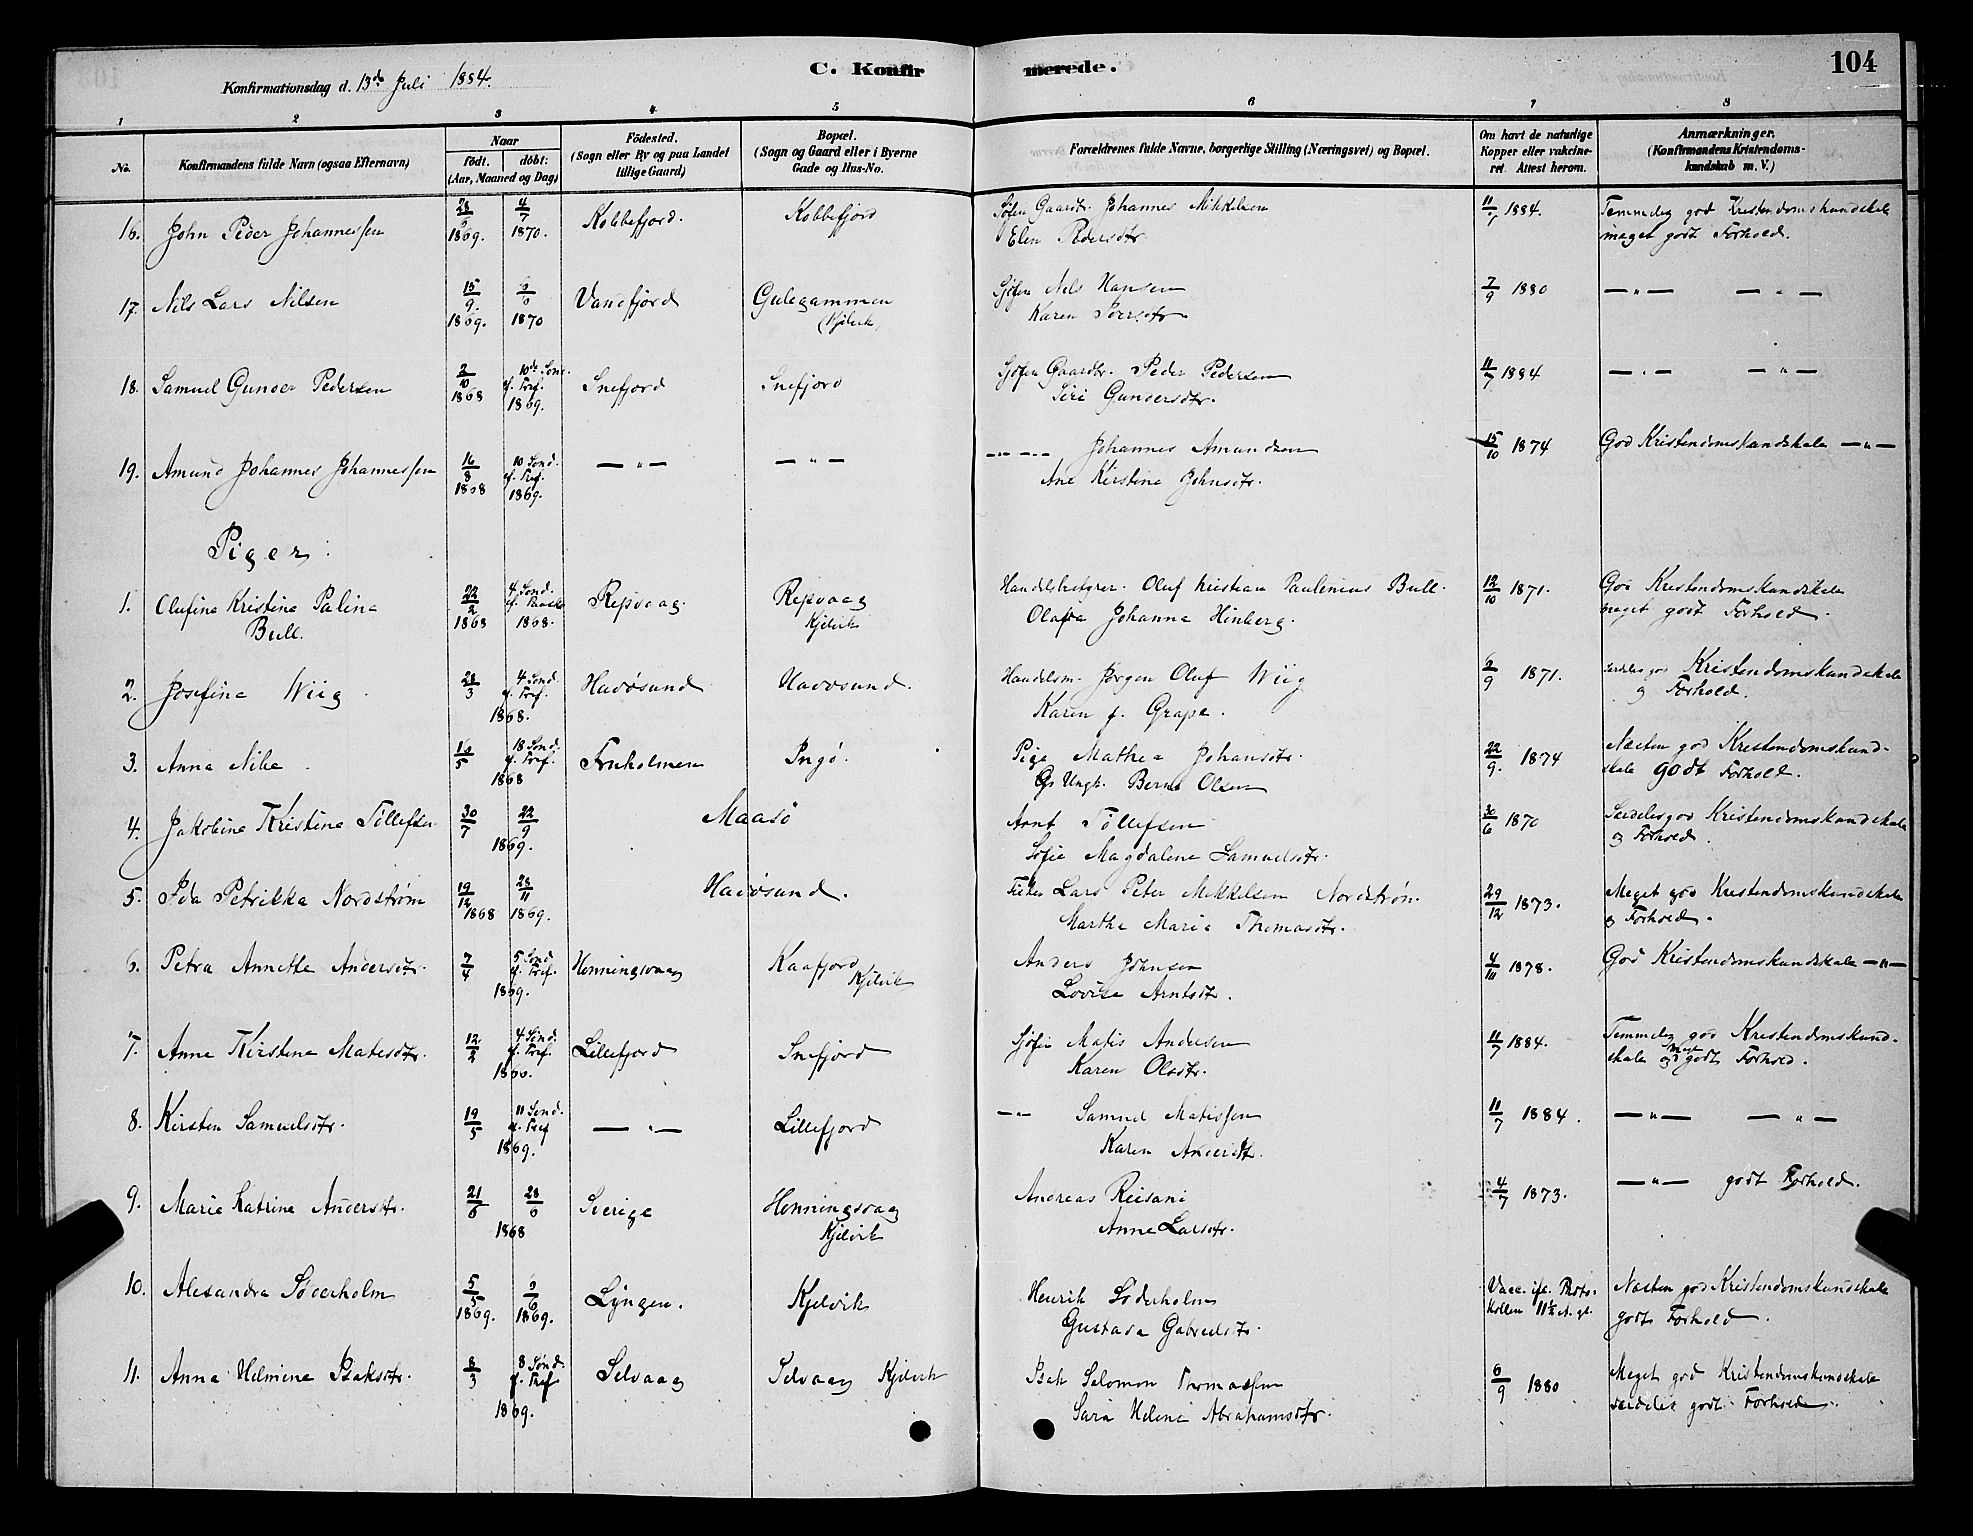 Konfirmationsdag d. 13de Juli 1884.
C. Konfirmerede.
104
1 2 3 4 5 6 7 8
No.
Konfirmandens fulde Navn (ogsaa Efternavn)
Naar
födt. döbt:
(Aar, Maaned og Dag)
Födested.
(Sogn eller By og paa Landet
tillige Gaard)
Bopæl.
(Sogn og Gaard eller i Byerne
Gade og Hus-No.
Forældrenes fulde Navne, borgerlige Stilling (Næringsvei) og Bopæl.
Om havt de naturlige
Kopper eller vakcine-
ret Attest herom.
Anmærkninger.
(Konfirmandens Kristendoms-
kundskab m. V.)
16. John Peder Johannessen 1869. 4/7 1870. Kobbefjord. Kobbefjord Johannes Mikkelsen 1884. Temmelig god Kristendomskundskab
Elen Pedersdtr meget godt Forhold.
17. Nils Lars Nilsen 15/9 1869. 1870 Gulegammen Nils Hansen 7/9 1880 —„— —„—
(Kjelvik Karen
18. Samuel Gunder Pedersen 2/10 1868 10de Sønd. ef. Tref. 1869. Snefjord Snefjord Peder Pedersen 11/7 1884 —„— —„—
Siri Gundersdtr.
19. Amund Johannes Johannessen 16/8 1868 10 Sønd. ef. Tref. 1869. —„— —„— Johannes Amundsen 15/10 1874 God Kristendomskundskab —„—
Ane Kirstine Johnsdtr.
Piger:
1. Olufine Kristine Paline 22/2 1868 4 Sønd. ef. Paaske 1868. Repvaag. Repvaag Oluf Kristian Paulenius Bull. 12/10 1871. God Kristendomskundskab
Bull. Kjelvik Johanna meget godt Forhold.
2. Josefine Wiig 28/3 4 Sønd. ef. Tref. 1868. Havøsund Havøsund. Handelsm. Jørgen Oluf Wiig 1871. særdeles god Kristendomskundskab
Karen f. Grape. og Forhold.
3. Anna Nilse 18 Sønd. ef. Tref. 1868 Fruholmen Ingö. Pige Mathea Johansdtr. 22/9. 1874 Næsten god Kristendomskund-
og Ungk. Olsen skab godt Forhold.
4. Jakobine Kristine Tollefsen 30/7 22/9 1869. Maasö Arnt Tollefsen 30/6 1870 Særdeles god Kristendomskundskab
Sofie Magdalene Samuelsdtr. og Forhold.
5. Ida Petrikka Nordstrøm 19/12 1868 28/11 1869. Havøsund. Lars Peter Mikkelsen Nordstrøm. 29/12 1873. Meget god Kristendomskundskab
Marthe Marie Thomasdtr. og Forhold.
6. Petra Annette Andersdtr. 7/4 5 Sønd. ef. Tref. 1869. Honningsvaag Kaafjord Anders Johnsen 1878. God Kristendomskundskab —„—
Kjelvik Lovise Arntsdtr.
7. Anne Kirstine Matisdtr. 12/2 4 Sønd. ef. Tref. Lillefjord Snefjord Matis Andersen 11/7 1884. Temmelig god Kristendomskund-
Karen Olsdtr. skab og meget godt Forhold.
8. Kirsten Samuelsdtr. 19/5 11 Sønd. ef. Tref 1869. —„— Lillefjord —„— Samuel Matissen 11/7 1884. —„— —„—
Karen Andersdtr.
9. Marie Katrine Andersdtr. 1868 Sverige Honningsvaag Andreas Reisani 4/7 1873. —„— godt Forhold.
Kjelvik Anne Larsdtr.
10. Alexandra Söderholm 5/5 1869. 1869. Lyngen. Kjelvik Henrik Söderholm Vacc. ifl. Proto- Næsten god Kristendomskundskab
Gustava Gabrielsdtr. kollen 11½ A. gl. godt Forhold.
11. Anna Helmine Isaksdtr. 8/3 8 Sønd. ef. Tref 1869. Selvaag Selvaag Kjelvik Isak Salomon Thomassen 6/9 1880 Meget god Kristendomskundskab
Sara Abrahamsdtr. særdeles godt Forhold.